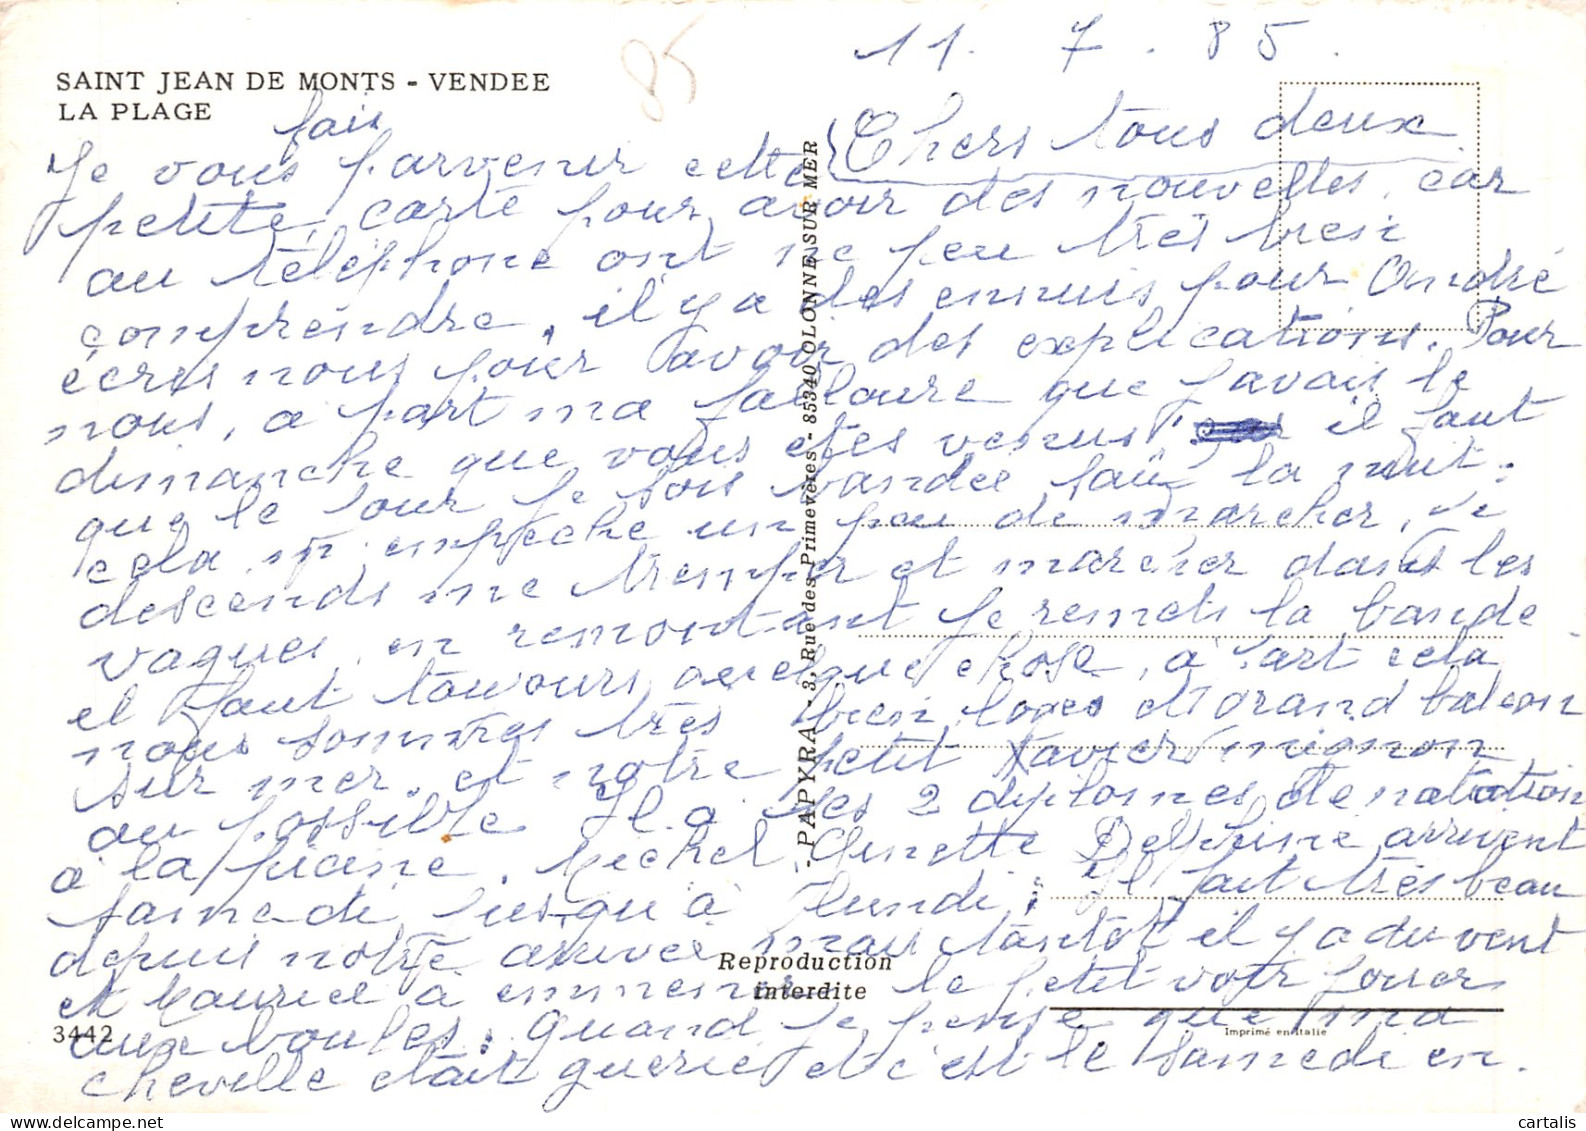 11.7.85.
85
SAINT JEAN DE MONTS - VENDEE
LA PLAGE
Chers tous deux
fais
Je vous parvenir cette
petite, carte pour avoir des nouvelles, car
au téléphone ont ne peu très bien
comprendre, il y a des ennuis pour André
écris nous pour avoir des explications. Pour
nous, a part ma que j'avais le
dimanche que vous etes venus il faut
que le jour je sois bandée la nuit.
cela m'empêche un peu de marcher, je
descends me tremper et marcher dans les
vagues, en remontant je remets la bande
il faut toujours quelque chose, à part cela
nous sommes très bien loges grand balcon
sur mer, et notre petit Xavier mignon
au possible Il a ses 2 diplomes de natation
à la piscine. Michel, Ginette Delphine arrivent
samedi jusqu'à lundi; Il fait très beau
depuis notre arrivée mais tantôt il y a du vent
et Maurice a emmener le petit voir jouer
aux boules. quand je pense que ma
cheville était guerie et c'est le samedi en.
- PAPYRA - 3, Rue des Primevères - 85340 OLONNE SUR MER
Reproduction
interdite
3442
Imprimé en Italie
cartalis